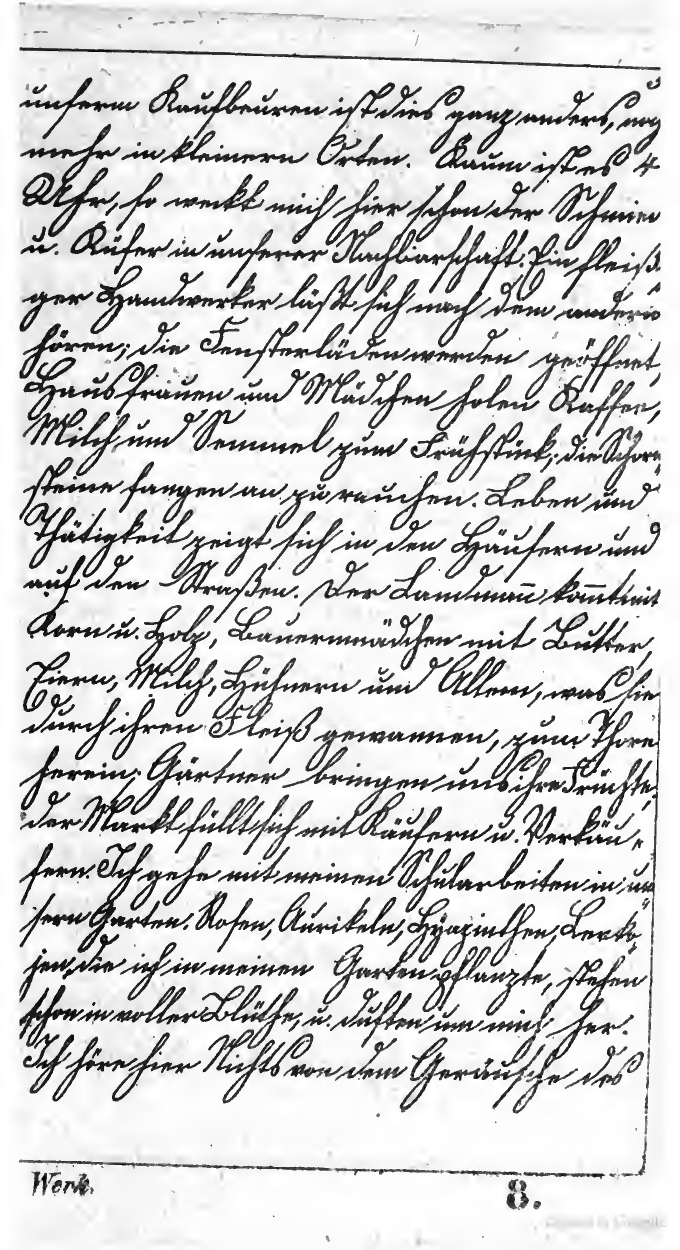 unserm Kaufbeuren ist dies ganz anders, noch
mehr in kleinern Orten. Kaum ist es 4
Uhr, so weckt mich hier schon der Schmied
u. Küfer in unserer Nachbarschaft. Ein fleißi-
ger Handwerker läßt sich nach dem andern
hören; die Fensterläden werden geöffnet,
Hausfrauen und Mädchen holen Kaffee,
Milch und Semmel zum Frühstück; die Schorn-
steine fangen an zu rauchen. Leben und
Thätigkeit zeigt sich in den Häusern und
auf den Straßen. Der Landmañ kom̄t mit
Korn u. Holz, Bauernmädchen mit Butter,
Eiern, Milch, Hühnern und Allem, was sie
durch ihren Fleiß gewannen, zum Thore
herein; Gärtner bringen uns ihre Früchte;
der Markt füllt sich mit Käufern u. Verkäu-
fern. Ich gehe mit meinen Schularbeiten in un-
sern Garten. Rosen, Aurikeln, Hyazinthen, Levko-
jen, die ich in meinen Garten pflanzte, stehen
schon in voller Blüthe, u. duften um mich her.
Ich höre hier Nichts von dem Geräusche des
Werk.
8.